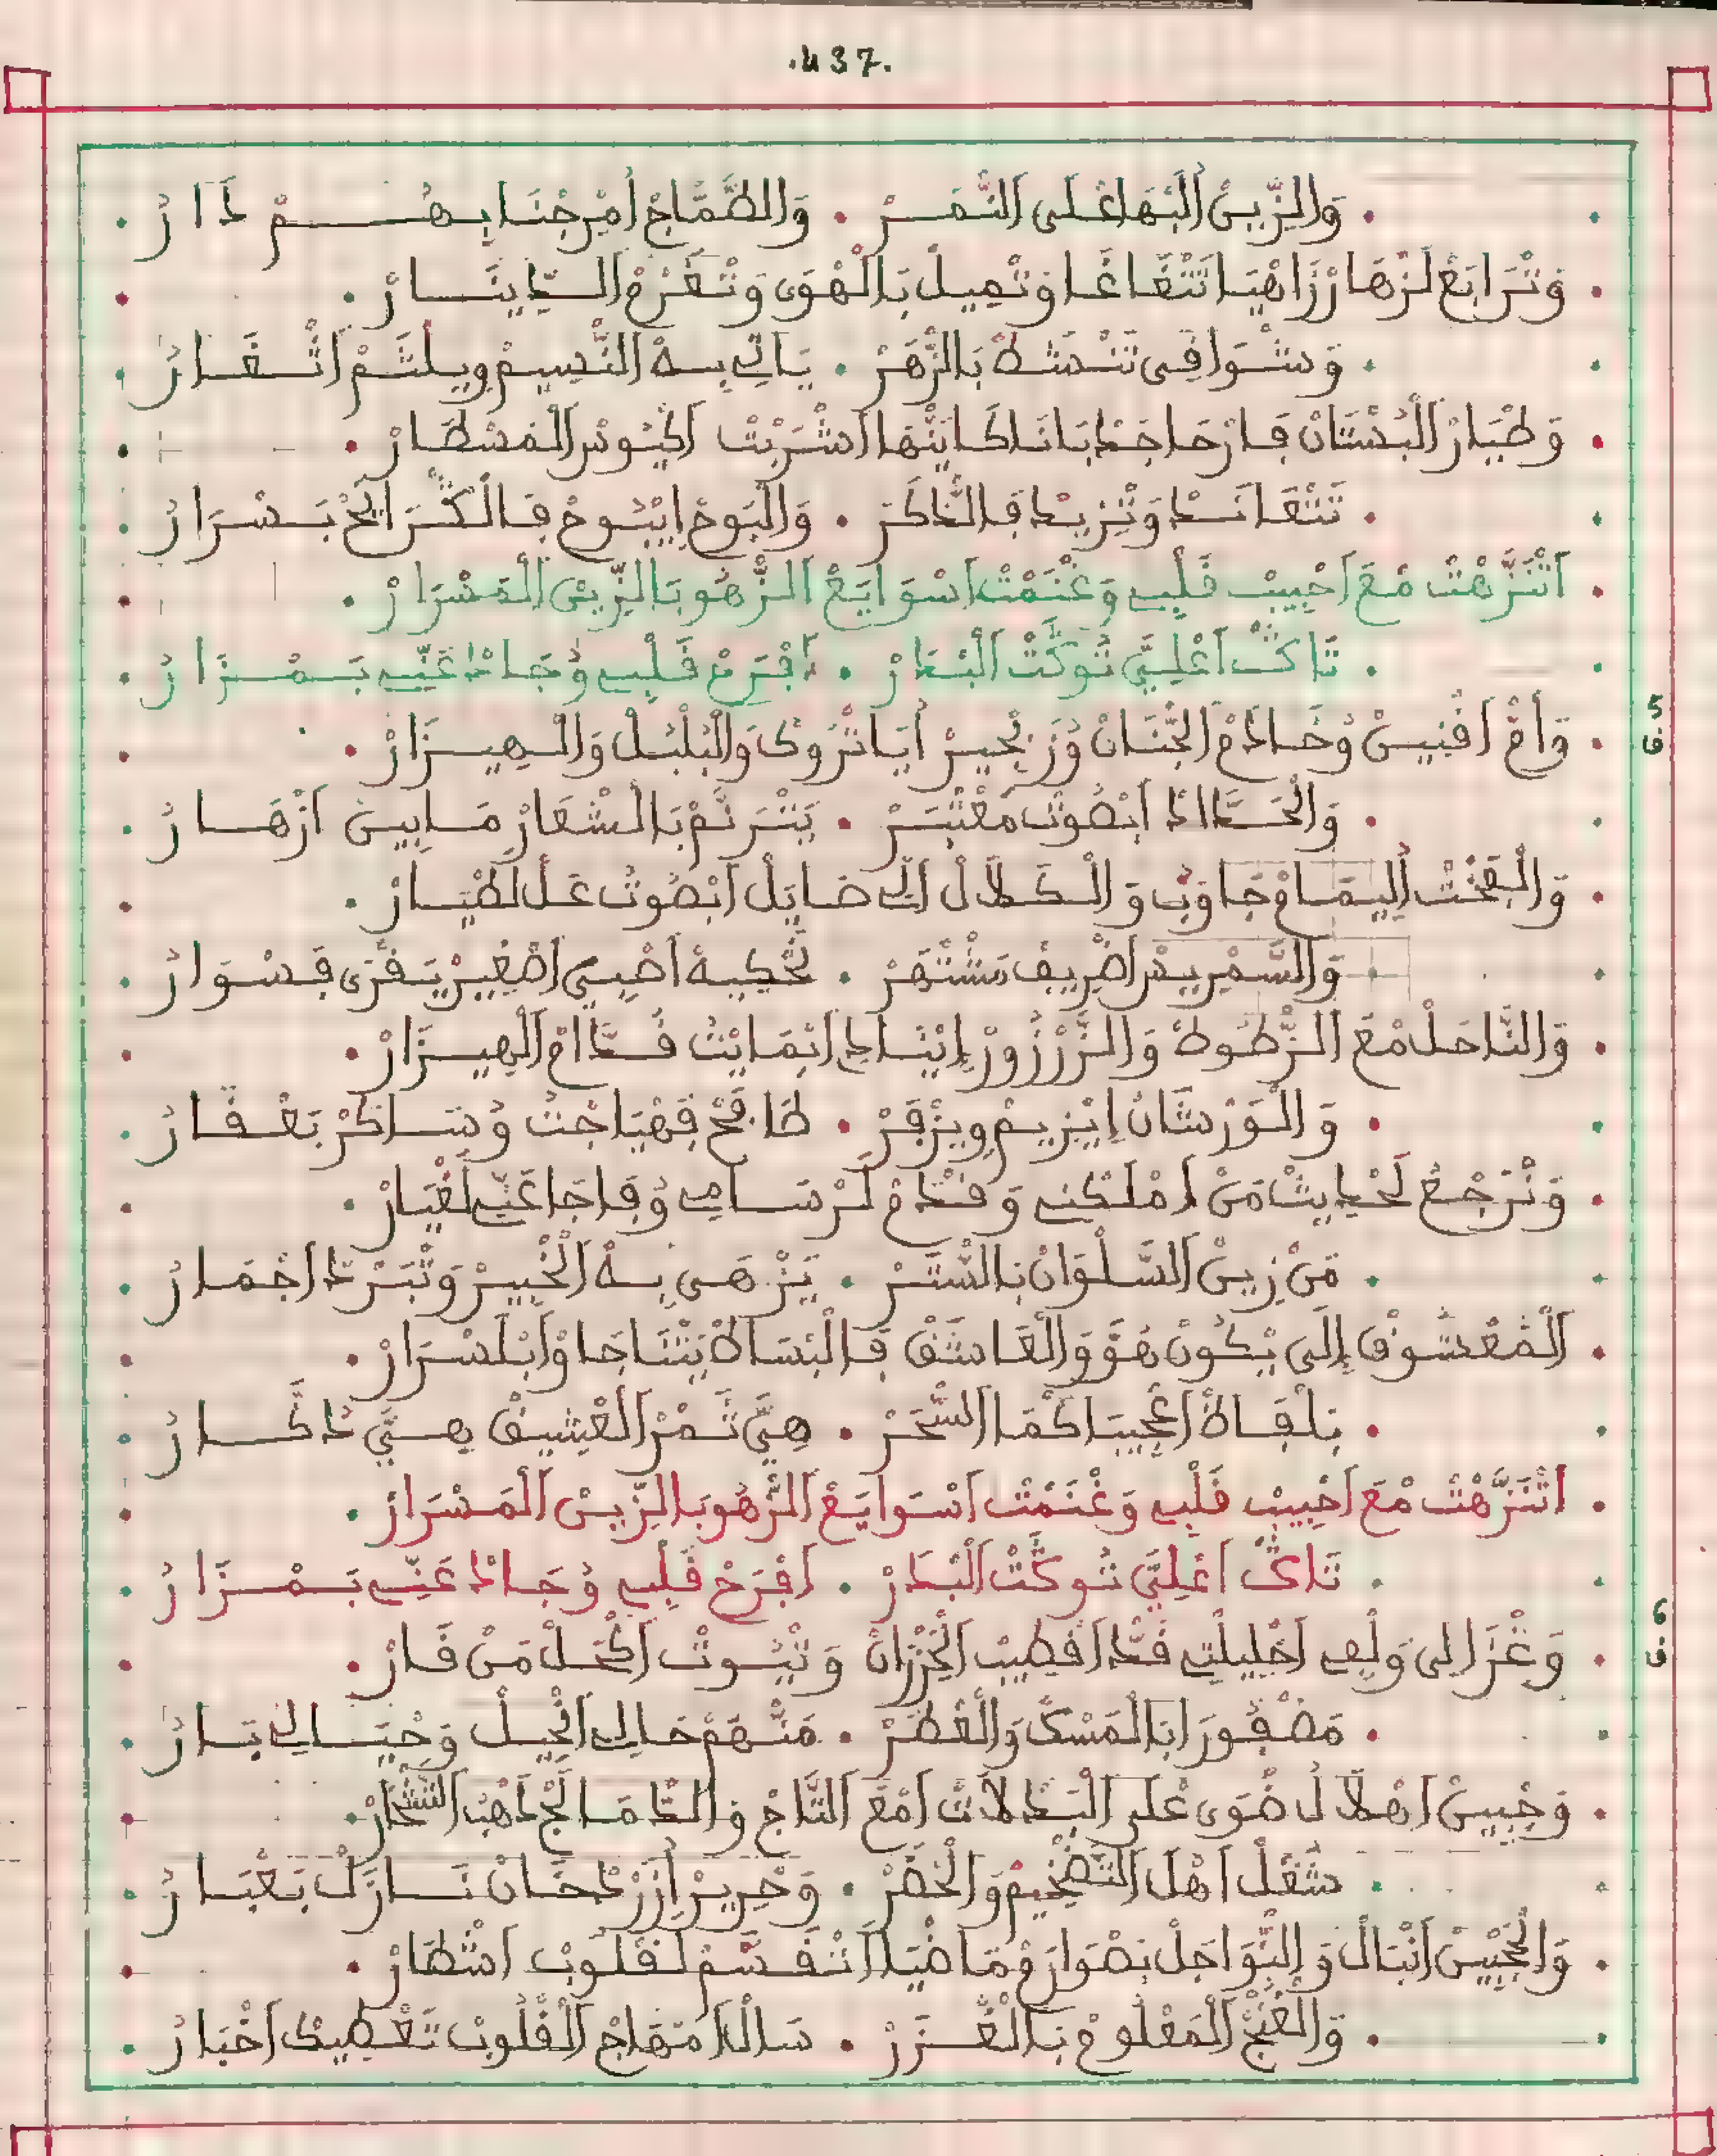 .437.
. وَالزِّينْ اَلْبَهَا اعْلَى النَّمَرْ . وَالطَّمَّاجْ اُمْرِجْنَا بِهُمْ دَارْ .
. وَتْرَابَعْ لَزْهَارْ زَاهْيَا تَتْغَاغَا وَتْمِيلْ بَالْهْوَى وَتْغَرْمْ الدِّينَارْ .
. وَسْوَاقِي تَنْشَطْ بَالزّْهَرْ . يَاتِي بِهْ النّْسِيمْ وِيلْثَمْ اَثْغَارْ .
. وَطْيَارْ اَلْبُسْتَانْ فَارْحَا جَدْبَانَا كَايَنّْهَا اَشْرَبْتْ اَكْيُوسْ الْمَسْطَارْ .
. تَتْقَانَدْ وَتْزِيدْ فَالذّْكَرْ . وَالْبُوحْ اِيْبُوحْ فَالْكْرَايَحْ بَسْرَارْ .
. اَتْنَزَّهْتْ مْعَ اَحْبِيبْ قَلْبِي وَغْنَمْتْ اَسْوَايَعْ الزّْهُو بَالزِّينْ الْمَسْرَارْ .
. تَاكْ اَعْلِيَّ تُوكْتْ اَلْبْدَارْ . اَفْرَحْ قَلْبِي وُجَادْ عَنِّي بَمْزَارْ .
5 ق
. وَاَمْ اَقْنِينْ وُخَادَمْ الجّْنَانْ وُزَنْجِيرْ اَيَا تْرُوكْ وَالْبُلْبُلْ وَالْهِيزَارْ .
. وَالْحَدَّادْ اَبْصُوتْ مَعْتْبَرْ . يَتْرَنَّمْ بَالْشْعَارْ مَابِينْ اَزْهَارْ .
. وَالْبَخْتْ اَلِيمَامْ جَاوَبْ وَالْكَلاَّلْ اَلِّي صَايَلْ اَبْصُوتُ عَلْ لَطْيَارْ .
. وَالسَّمْرِيسْ اَظْرِيفْ مَشْتْهَرْ . تَحْكِيهْ اَصْبِي اَصْغِيرْ يَقْرَى فَسْوَارْ .
. وَالنَّاحَلْ مْعَ الزّْطُوطْ وَالزَّرْزُورْ اِيْنَادِ اَيْمَايْتُ قُدَّامْ اَلْهِيزَارْ .
. وَالْوَرْشَانْ اِيْزِيمْ وِيزْفَرْ . طَافَحْ فَهْيَاجْتُ وُسَاكَرْ بَعْقَارْ .
. وَنَرْجَعْ لَحْدِيثْ مَنْ اَمْلَكْنِي وَقْدَمْ لَرْسَامِي وُفَاجَا عَنِّي لَغْيَارْ .
. مَنْ زِينْ السَّلْوَانْ بَالسّْتَرْ . يَزْهَى بِهْ اَلْخْبِيرْ وَتْبَرْدْ اَجْمَارْ .
. اَلْمَعْشُوقْ اِلَى يْكُونْ هُوَّ وَالْعَاشَقْ فَالْبْسَاطْ يَتْنَاجَاوْا بَلْسْرَارْ .
. بَلْفَاظْ اَعْجِيبَا كْمَا السّْحَرْ . هِيَّ تَمْرْ الْعْشِيقْ هِيَّ دَكَّارْ .
. اَتْنَزَّهْتْ مْعَ اَحْبِيبْ قَلْبِي وَغْنَمْتْ اَسْوَايَعْ الزّْهُو بَالزِّينْ الْمَسْرَارْ .
. تَاكْ اَعْلِيَّ تُوكْتْ اَلْبْدَارْ . اَفْرَحْ قَلْبِي وُجَادْ عَنِّي بَمْزَارْ .
6 ق
. وَغْزَالِي وَلْعِي اَخْلِيلْتِي قَدَّا قْطِيبْ الْخَزْرَانْ وَتْيُوتْ اَكْحَلْ مَنْ قَارْ .
. مَضْفُورَا بَالْمَسْكْ وَالْعْطَرْ . مَنّْهُمْ خَالِي اَنْحِيلْ وَحْيَالِي بَارْ .
. وَجْبِينْ اَهْلاَلْ ضْوَى عْلَى الْبَدْلاَتْ اَمْعَ التَّاجْ وَالدّْمَالَجْ دَهْبْ الشّْحَارْ .
. شْغُلْ اَهْلْ التَّضْخِيمْ وَالْحْضَرْ . وَحْرِيرْ اَزْرْدْخَانْ نَازَلْ بَعْبَارْ .
. وَالْحَجْبِينْ اَنْبَالْ وَالنّْوَاجَلْ بَصْوَارَمْ مَاضْيَا اَتْقَسَّمْ لَقْلُوبْ اَشْطَارْ .
. وَالْغَنْجْ الْمَعْلُومْ بَالْغْزَرْ . سَالْ اَمْهَاجْ الْقْلُوبْ تَعْطِيكْ اَخْبَارْ .